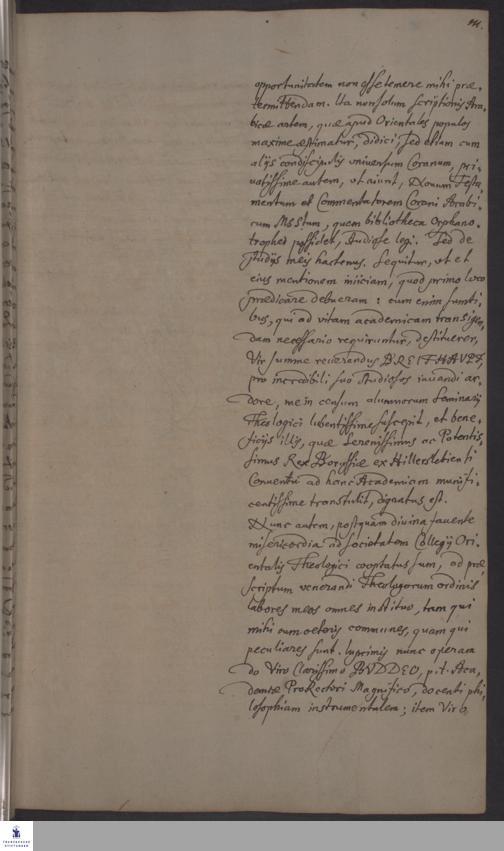 111.
opportunitatem non esse temere mihi præ-
termittendam. Ita non solum scriptionis Ara-
bicæ artem, quæ apud Orientales populos
maxime æstimatur, didici, sed etiam cum
aliis condiscipulis universum Coranum, pri-
vatissime autem, ut aiunt, Novum Testa-
mentum et Commentatorem Corani Arabi-
cum MSStum, quem bibliotheca Orphano-
trophei possidet, studiose legi. Sed de
studiis meis hactenus. Sequitur, ut et
eius mentionem iniiciam, quod primo loco
prædicare debueram: cum enim sumti-
bus, qui ad vitam academicam transigen-
dam necessario requiruntur, destituerer,
Vir summe reverandus BREITHAVPT,
pro incredibili suo studiosos iuvandi ar-
dore, me in censum alumnorum Seminarij
Theologici lubentissime suscepit, et bene-
ficijs illis, quæ Serenissimus ac Potentis-
simus Rex Borussiæ ex Hillerslebiensi
Conventu ad hanc Academiam munifi-
centissime transtulit, dignatus est.
Nunc autem, postquam divina favente
misericordia ad societatem Collegij Ori-
entalis Theologici cooptatus sum, ad præ-
scriptum venerandi Theologorum ordinis
labores meos omnes instituo, tam qui
mihi cum ceteris communes, quam qui
peculiares sunt. Inprimis nunc operam
do Viro Clarissimo BVDDEO, p. t. Aca-
demiæ ProRectori Magnifico, docenti phi-
losophiam instrumentalem; item Viro
FRANCKESCHE
STIFTUNGEN